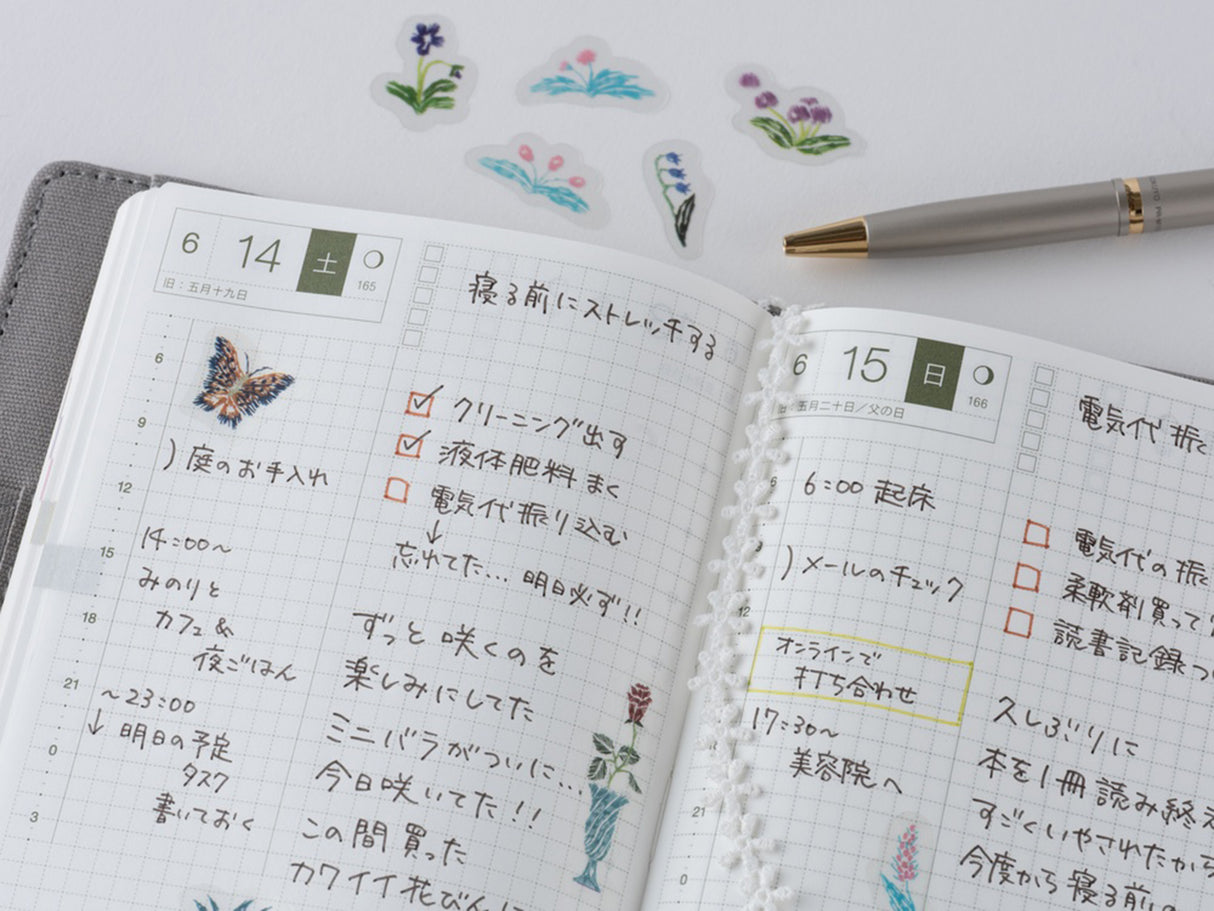 6 14 土 165
旧：五月十九日
寝る前にストレッチする
6
9
12
15
18
21
0
3
)庭のお手入れ
14:00〜
みのりと
カフェ&
夜ごはん
〜23:00
↓明日の予定
タスク
書いておく
クリーニング出す
液体肥料まく
電気代振り込む
↓
忘れてた…明日必ず!!
ずっと咲くのを
楽しみにしてた
ミニバラがついに…
今日咲いてた!!
この間買った
カワイイ花びんに
6 15 日 166
旧：五月二十日／父の日
電気代 振
6
9
12
21
0
6:00 起床
)メールのチェック
オンラインで
打ち合わせ
17:30〜
美容院へ
電気代の振
柔軟剤買って
読書記録つ
久しぶりに
本を1冊読み終え
すごくいやされたから
今度から寝る前の